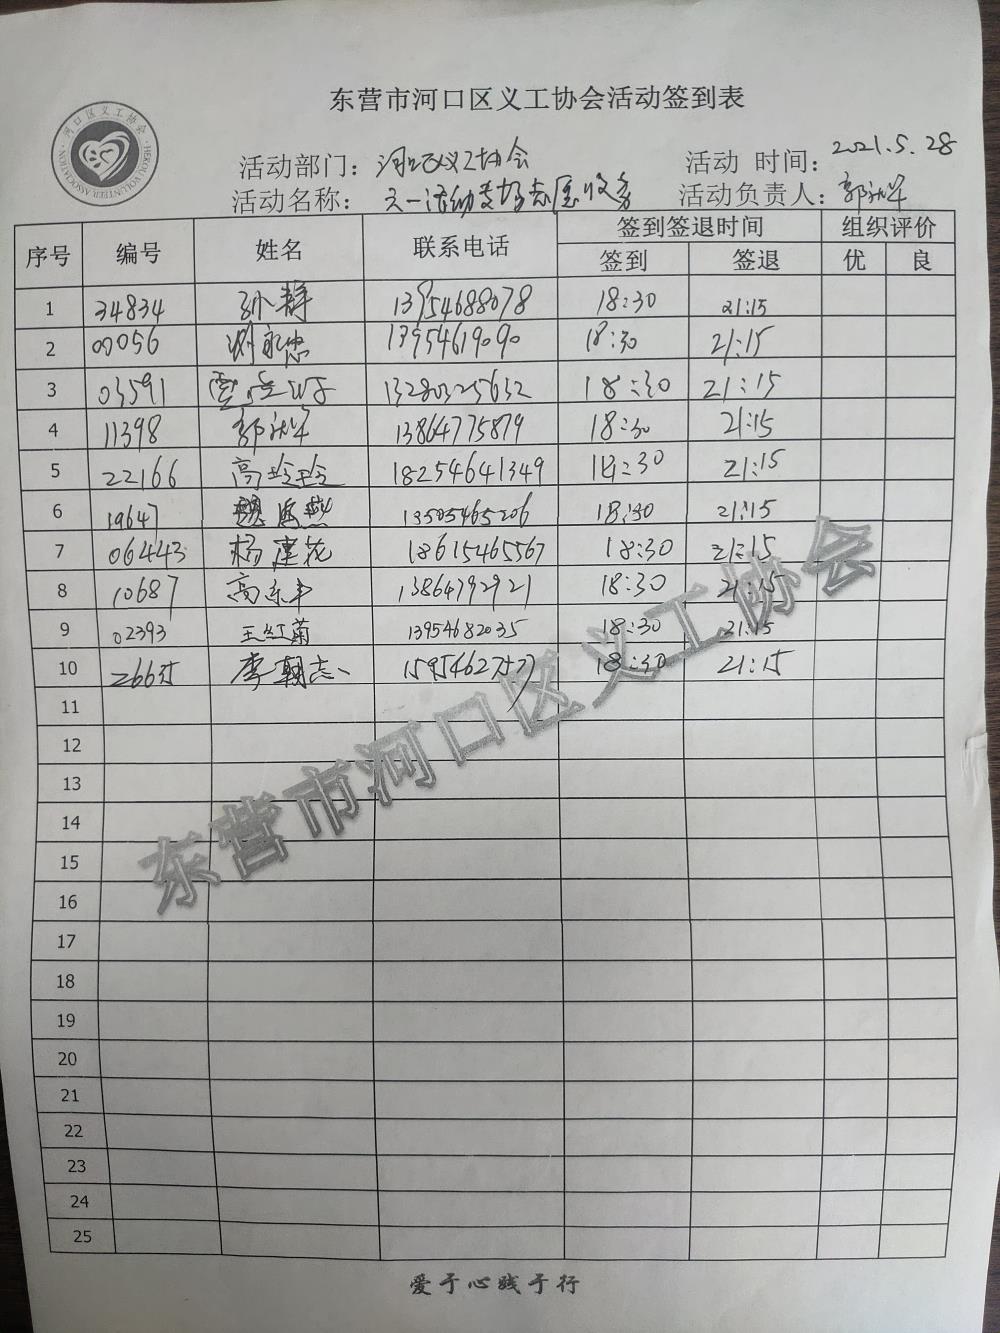 东营市河口区义工协会活动签到表
河口区义工协会
HEKOU VOLUNTEER ASSOCIATION
活动部门：河口区义工协会 活动 时间：2021.5.28
活动名称：六一活动 志愿服务 活动负责人：郭
序号 编号 姓名 联系电话 签到签退时间 组织评价
签到 签退 优 良
1 34834 孙静 13954688078 18:30 21:15
2 00056 刘永忠 13954619090 18:30 21:15
3 03591 13280325632 18:30 21:15
4 11398 郭 13864775879 18:30 21:15
5 22166 高玲玲 18254641349 18:30 21:15
6 19647 魏 燕 13505465206 18:30 21:15
7 06443 杨建花 18615465567 18:30 21:15
8 10687 高 13864792921 18:30 21:15
9 02393 王红菊 13954682035 18:30 21:15
10 李朝志 18:30 21:15
11
12
13
14
15
16
17
18
19
20
21
22
23
24
25
东营市河口区义工协会
爱于心践于行